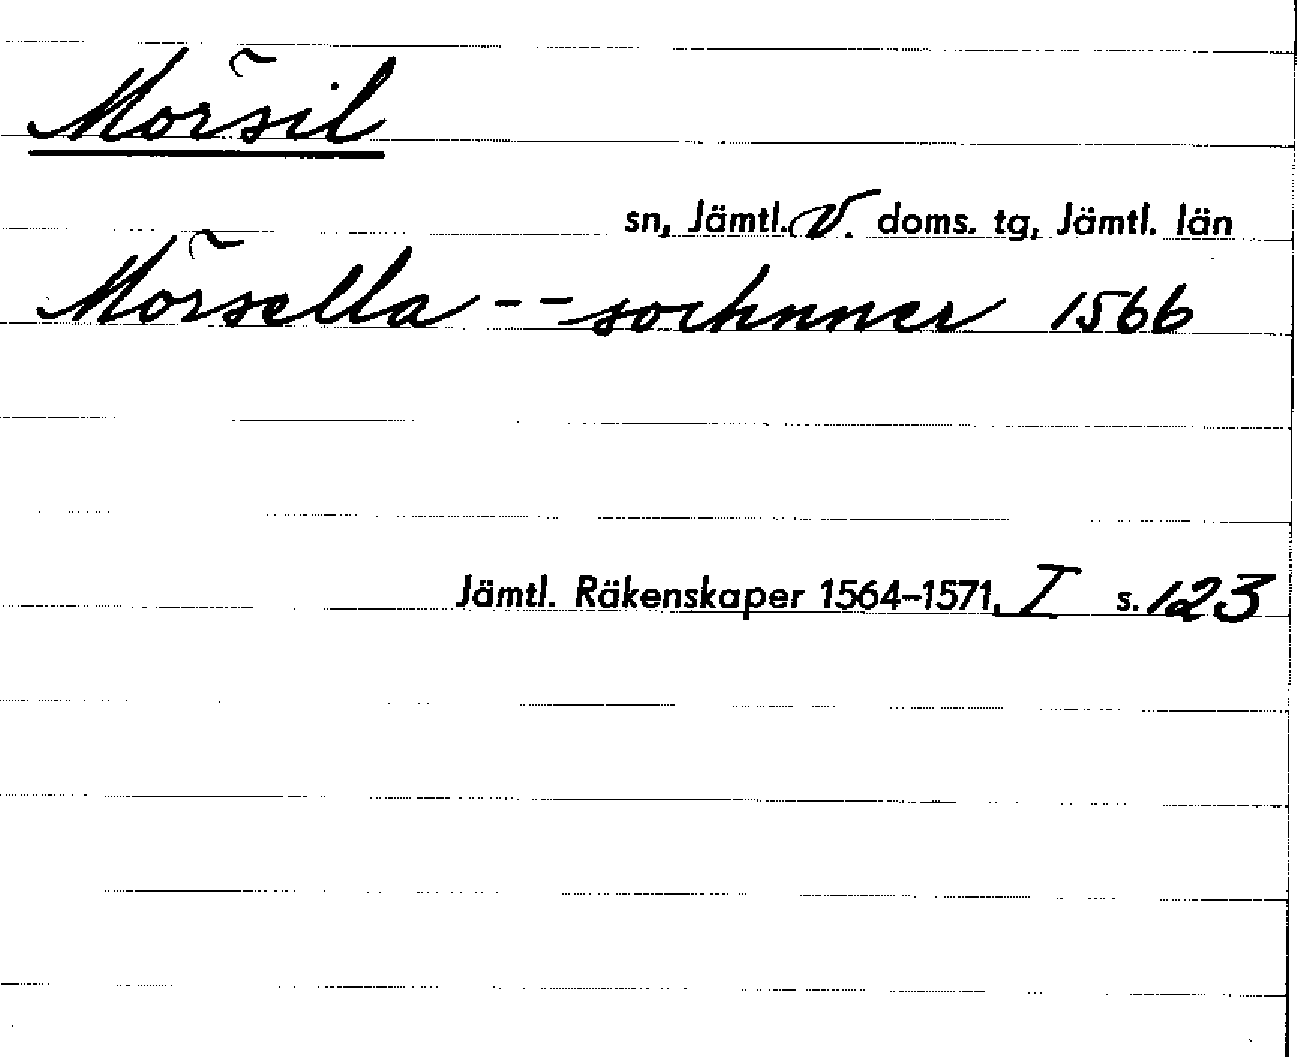 Mörsil
sn, Jämtl. V. doms. tg, Jämtl. län
Mörsella -- sochnner 1566
Jämtl. Räkenskaper 1564-1571, I s. 123